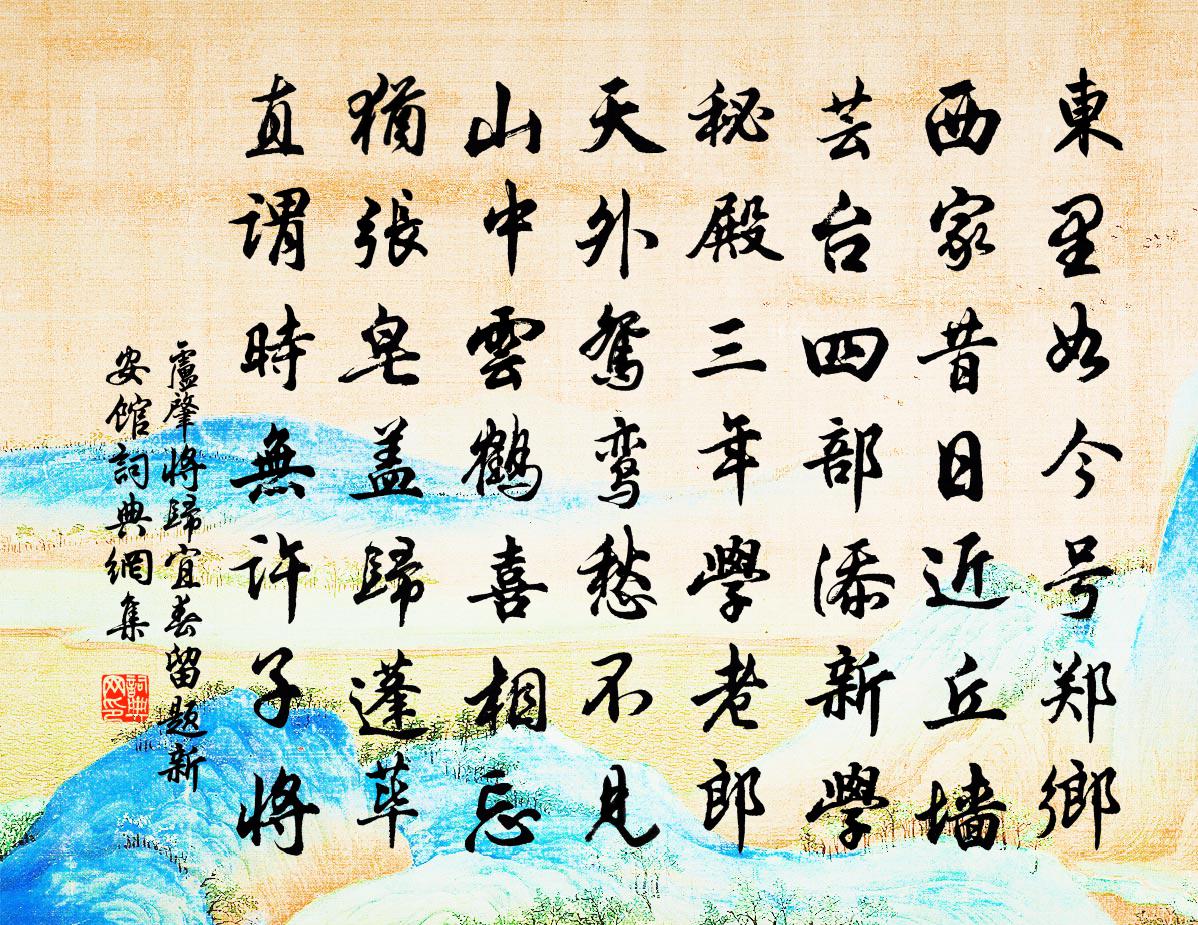 東里如今号郑鄉
西家昔日近丘墙
芸台四部添新學
秘殿三年學老郎
天外鸳鸾愁不見
山中雲鶴喜相忘
猶張皂盖歸蓬荜
直謂時無許子將
盧肇將歸宜春留題新
安馆詞典網集
詞典网印